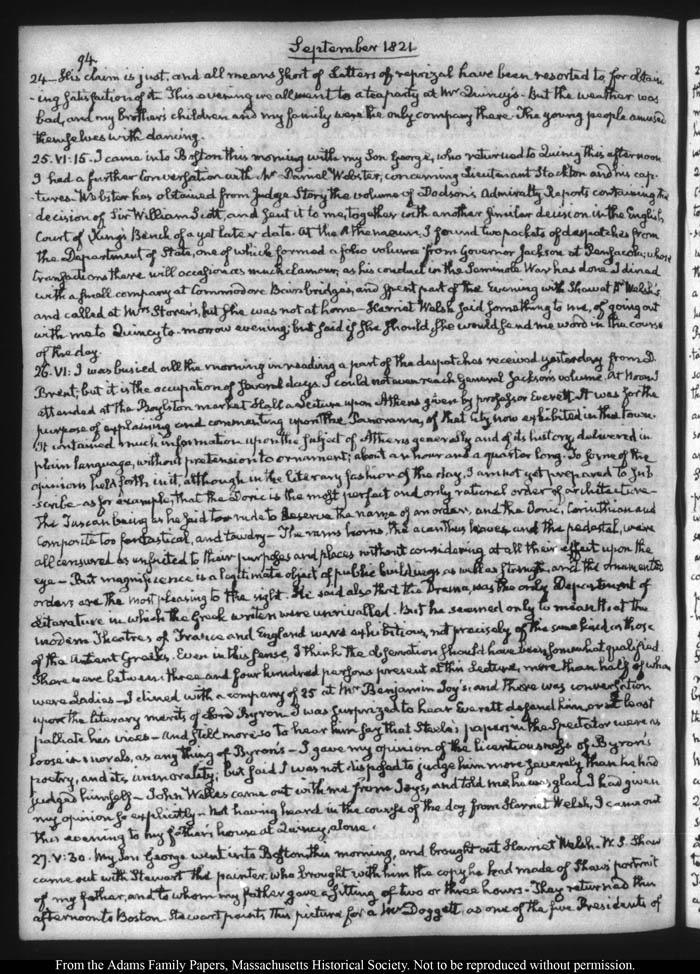 94
September 1821
24. His claim is just, and all means short of Letters of reprizal have been resorted to, for obtain-
ing satisfaction of it. This evening we all went to a tea party at Mr Quincy's. But the weather was
bad, and my brother's children and my family were the only company there. The young people amused
themselves with dancing.
25. VI:15. I came into Boston this morning with my Son George, who returned to Quincy this afternoon
I had a further conversation with Mr Daniel Webster, concerning Lieutenant Stockton and his cap-
tures. Webster has obtained from Judge Story the volume of Dodson's Admiralty Reports containing the
decision of Sir William Scott, and sent it to me, together with another similar decision in the English
Court of King's Bench of a yet later date. At the Athenaeum, I found two packets of despatches from
the Department of State, one of which formed a folio volume from Governor Jackson at Pensacola; whose
transactions there will occasion as much clamour, as his conduct in the Seminole War has done. I dined
with a small company at Commodore Bainbridge's, and spent part of the evening with Shaw at Dr Welsh's
and called at Mrs Storer's, but she was not at home. Harriet Welsh said something to me, of going out
with me to Quincy to-morrow evening; but said if she should, she would send me word in the course
of the day.
26. VI: I was busied all the morning in reading a part of the despatches received yesterday from D.
Brent; but it is the occupation of several days. I could not even reach General Jackson's volume. At Noon I
attended at the Boylston market Hall a Lecture upon Athens given by professor Everett. It was for the
purpose of explaining and commenting upon the Panorama, of that City now exhibited in this town.
It contained much information upon the subject of Athens generally and of its history, delivered in
plain language, without pretension to ornament; about an hour and a quarter long. To some of the
opinions held forth in it, although in the literary fashion of the day, I am not yet prepared to sub-
scribe—as for example, that the Doric is the most perfect and only rational order of architecture—
The Tuscan being as he said too rude to deserve the name of an order, and the Ionic, Corinthian and
Composite too fantastical, and tawdry—The rams horns, the acanthus leaves and the pedestal, were
all censured as unfitted to their purposes and places without considering at all their effect upon the
eye—But magnificence is a legitimate object of public buildings as well as strength, and the ornamented
orders are the most pleasing to the sight. He said also that the Drama, was the only Department of
Literature in which the Greek writers were unrivalled. But he seemed only to mean that the
modern Theatres of France and England were exhibitions, not precisely of the same kind as those
of the Antient Greeks. Even in this sense, I think the observation should have been somewhat qualified.
There were between three and four hundred persons present at this Lecture, more than half of whom
were Ladies—I dined with a company of 25 at Mr Benjamin Joy's; and there was conversation
upon the literary merits of Lord Byron. I was surprized to hear Everett defend him, or at least
palliate his vices—and still more so to hear him say that Steele's papers in the Spectator were as
loose in morals, as any thing of Byron's—I gave my opinion of the licentiousness of Byron's
poetry, and its immorality; but said I was not disposed to judge him more severely than he had
judged himself—John Welles came out with me from Joy's, and told me he was glad I had given
my opinion so explicitly—Not having heard in the course of the day from Harriet Welsh, I came out
this evening to my father's house at Quincy, alone.
27. V:30. My Son George went into Boston this morning, and brought out Harriet Welsh. W. S. Shaw
came out with Stewart the painter, who brought with him the copy he had made of Shaw's portrait
of my father, and to whom my father gave a sitting of two or three hours—They returned this
afternoon to Boston. Stewart paints this picture for a Mr Doggett, as one of the five Presidents of
From the Adams Family Papers, Massachusetts Historical Society. Not to be reproduced without permission.